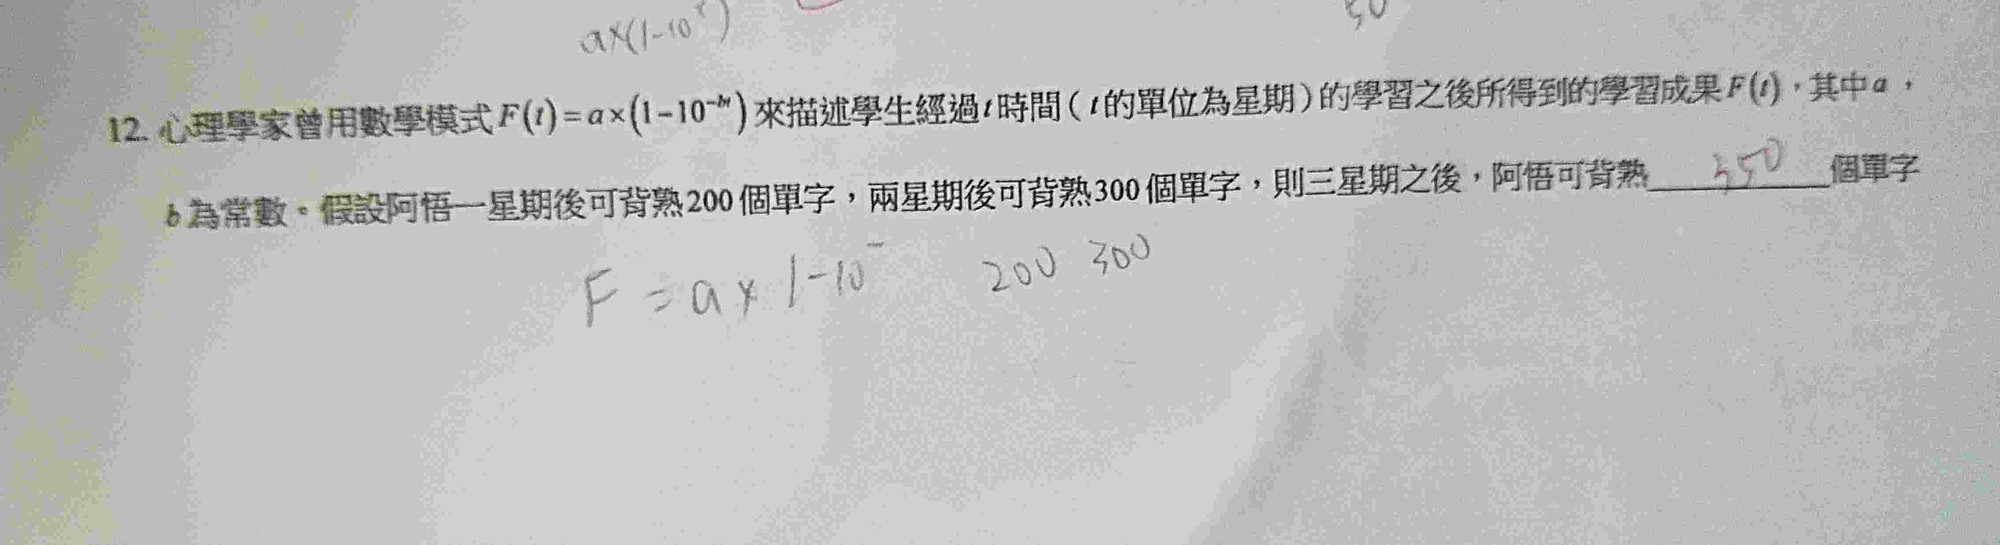 a×(1-10ˣ)
50
12. 心理學家曾用數學模式F(t)=a×(1-10^{-bt})來描述學生經過t時間(t的單位為星期)的學習之後所得到的學習成果F(t),其中a,
b為常數。假設阿悟一星期後可背熟200個單字,兩星期後可背熟300個單字,則三星期之後,阿悟可背熟 350 個單字
F = a × 1-10⁻ 200 300